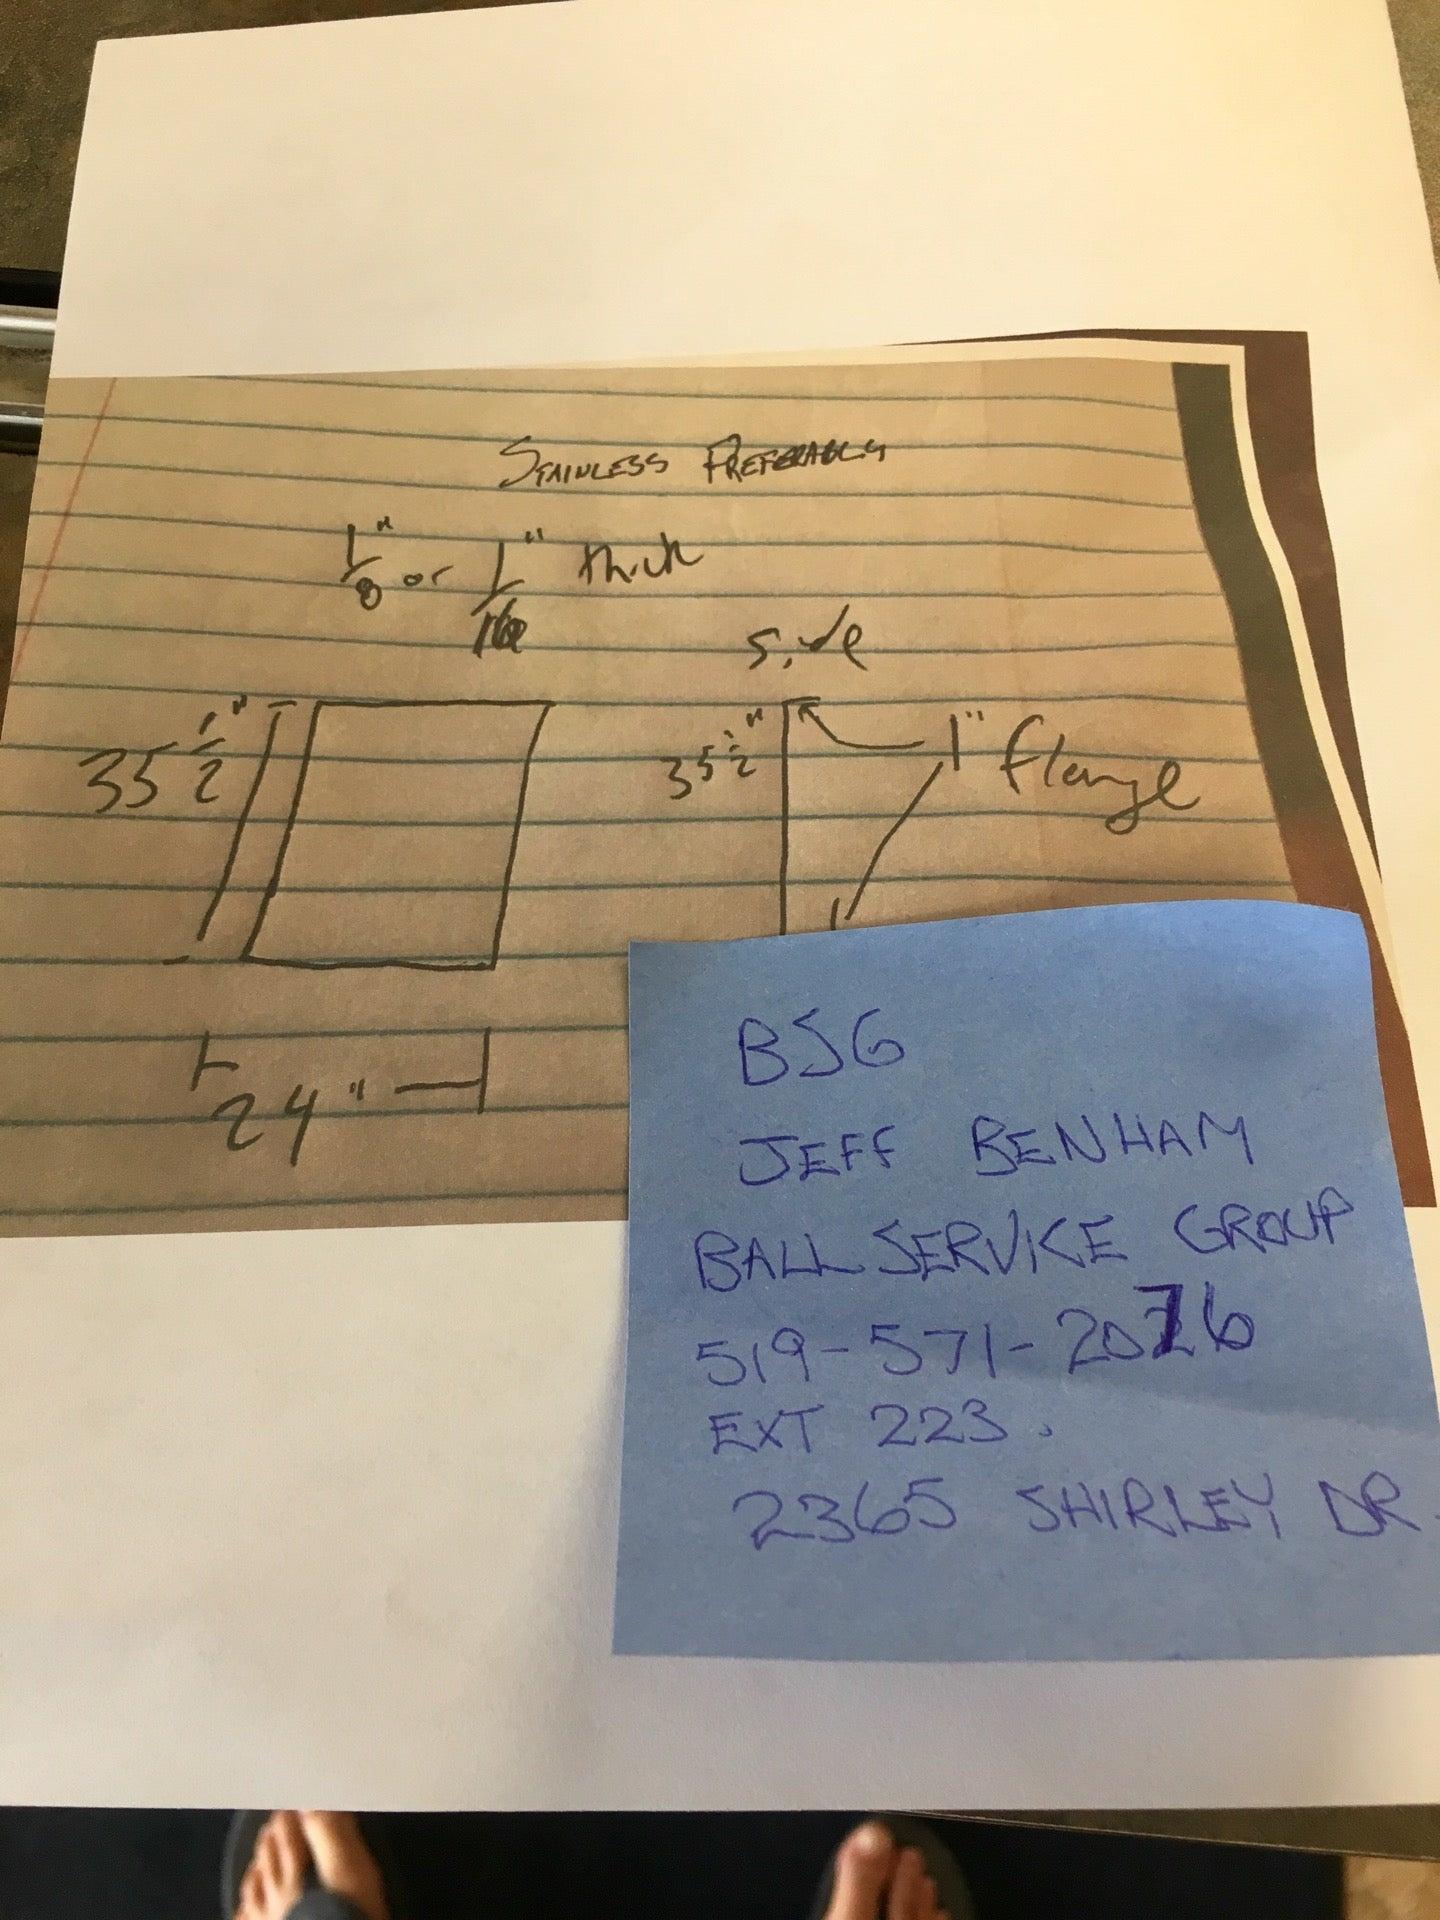 STAINLESS PREFERABLY
1/8" or 1/16" thick
side
35 1/2"
35 1/2"
1" flange
24"
BSG
JEFF BENHAM
BALL SERVICE GROUP
519-571-2076
EXT 223.
2365 SHIRLEY DR.